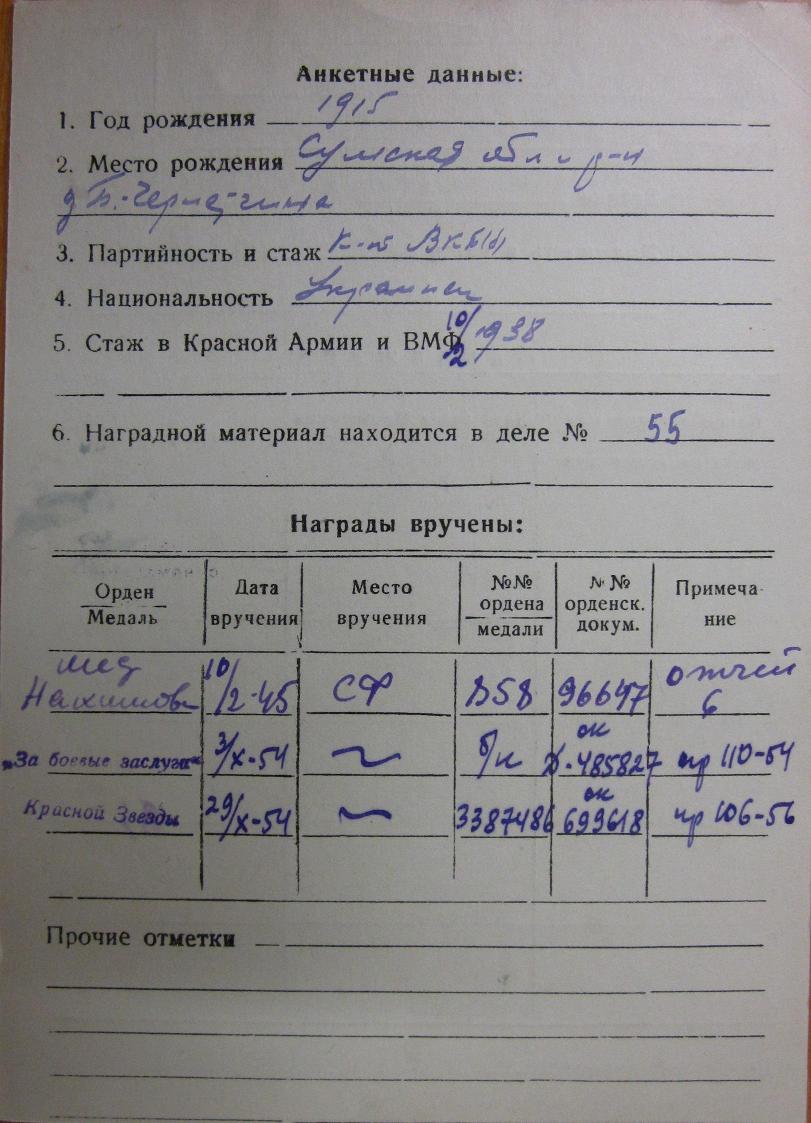 Анкетные данные:
1. Год рождения 1915
2. Место рождения Сумская обл и р-н
д Б.-Чернетчина
3. Партийность и стаж к-т ВКП(б)
4. Национальность украинец
5. Стаж в Красной Армии и ВМФ 10/2 1938
6. Наградной материал находится в деле № 55
Награды вручены:
Орден Медаль Дата вручения Место вручения №№ ордена медали №№ орденск. докум. Примеча- ние
мед Нахимова 10/2-45 СФ 858 96647 6
„За боевые заслуги“ 3/X-54 б/н ок 485827 пр 110-54
Красной Звезды 29/X-54 3387486 ок 699618 пр 106-56
Прочие отметки